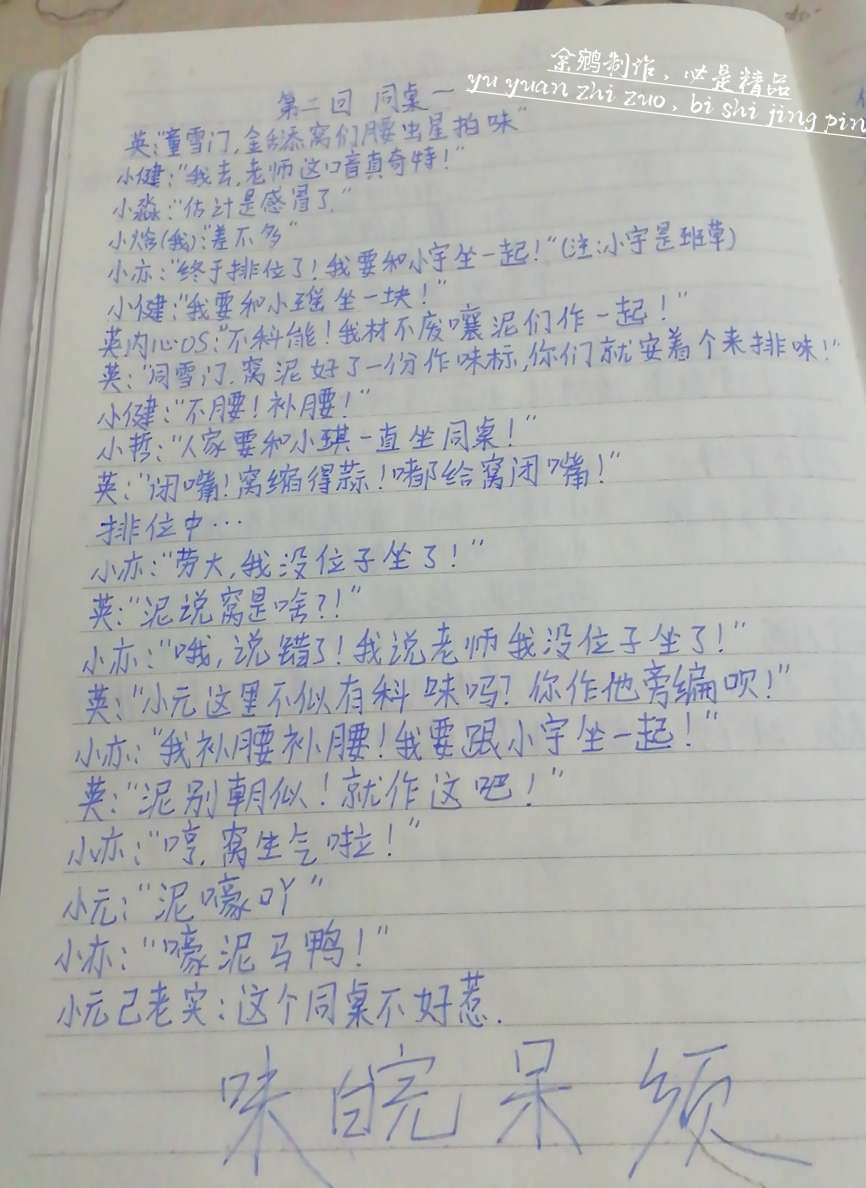 余鹓制作，必是精品
yu yuan zhi zuo，bi shi jing pin
第二回 同桌一
英：“童雪门，金舔窝们腰出星拍味”
小健：“我去，老师这口音真奇特！”
小淼：“估计是感冒了。”
小焓(我)：“差不多”
小亦：“终于排位了！我要和小宇坐一起！”(注：小宇是班草)
小健：“我要和小瑶坐一块！”
英内心OS：“不科能！我材不废嚷泥们作一起！”
英：“同雪门，窝泥好了一份作味标，你们就安着个来排味！”
小健：“不腰！补腰！”
小哲：“人家要和小琪一直坐同桌！”
英：“闭嘴！窝缩得蒜！嘟给窝闭嘴！”
排位中…
小亦：“劳大，我没位子坐了！”
英：“泥说窝是啥？！”
小亦：“哦，说错了！我说老师我没位子坐了！”
英：“小元这里不似有科味吗？你作他旁编呗！”
小亦：“我补腰补腰！我要跟小宇坐一起！”
英：“泥别朝似！就作这吧！”
小亦：“哼，窝生气啦！”
小元：“泥嚎吖”
小亦：“嚎泥马鸭！”
小元已老实：这个同桌不好惹.
味皖呆须